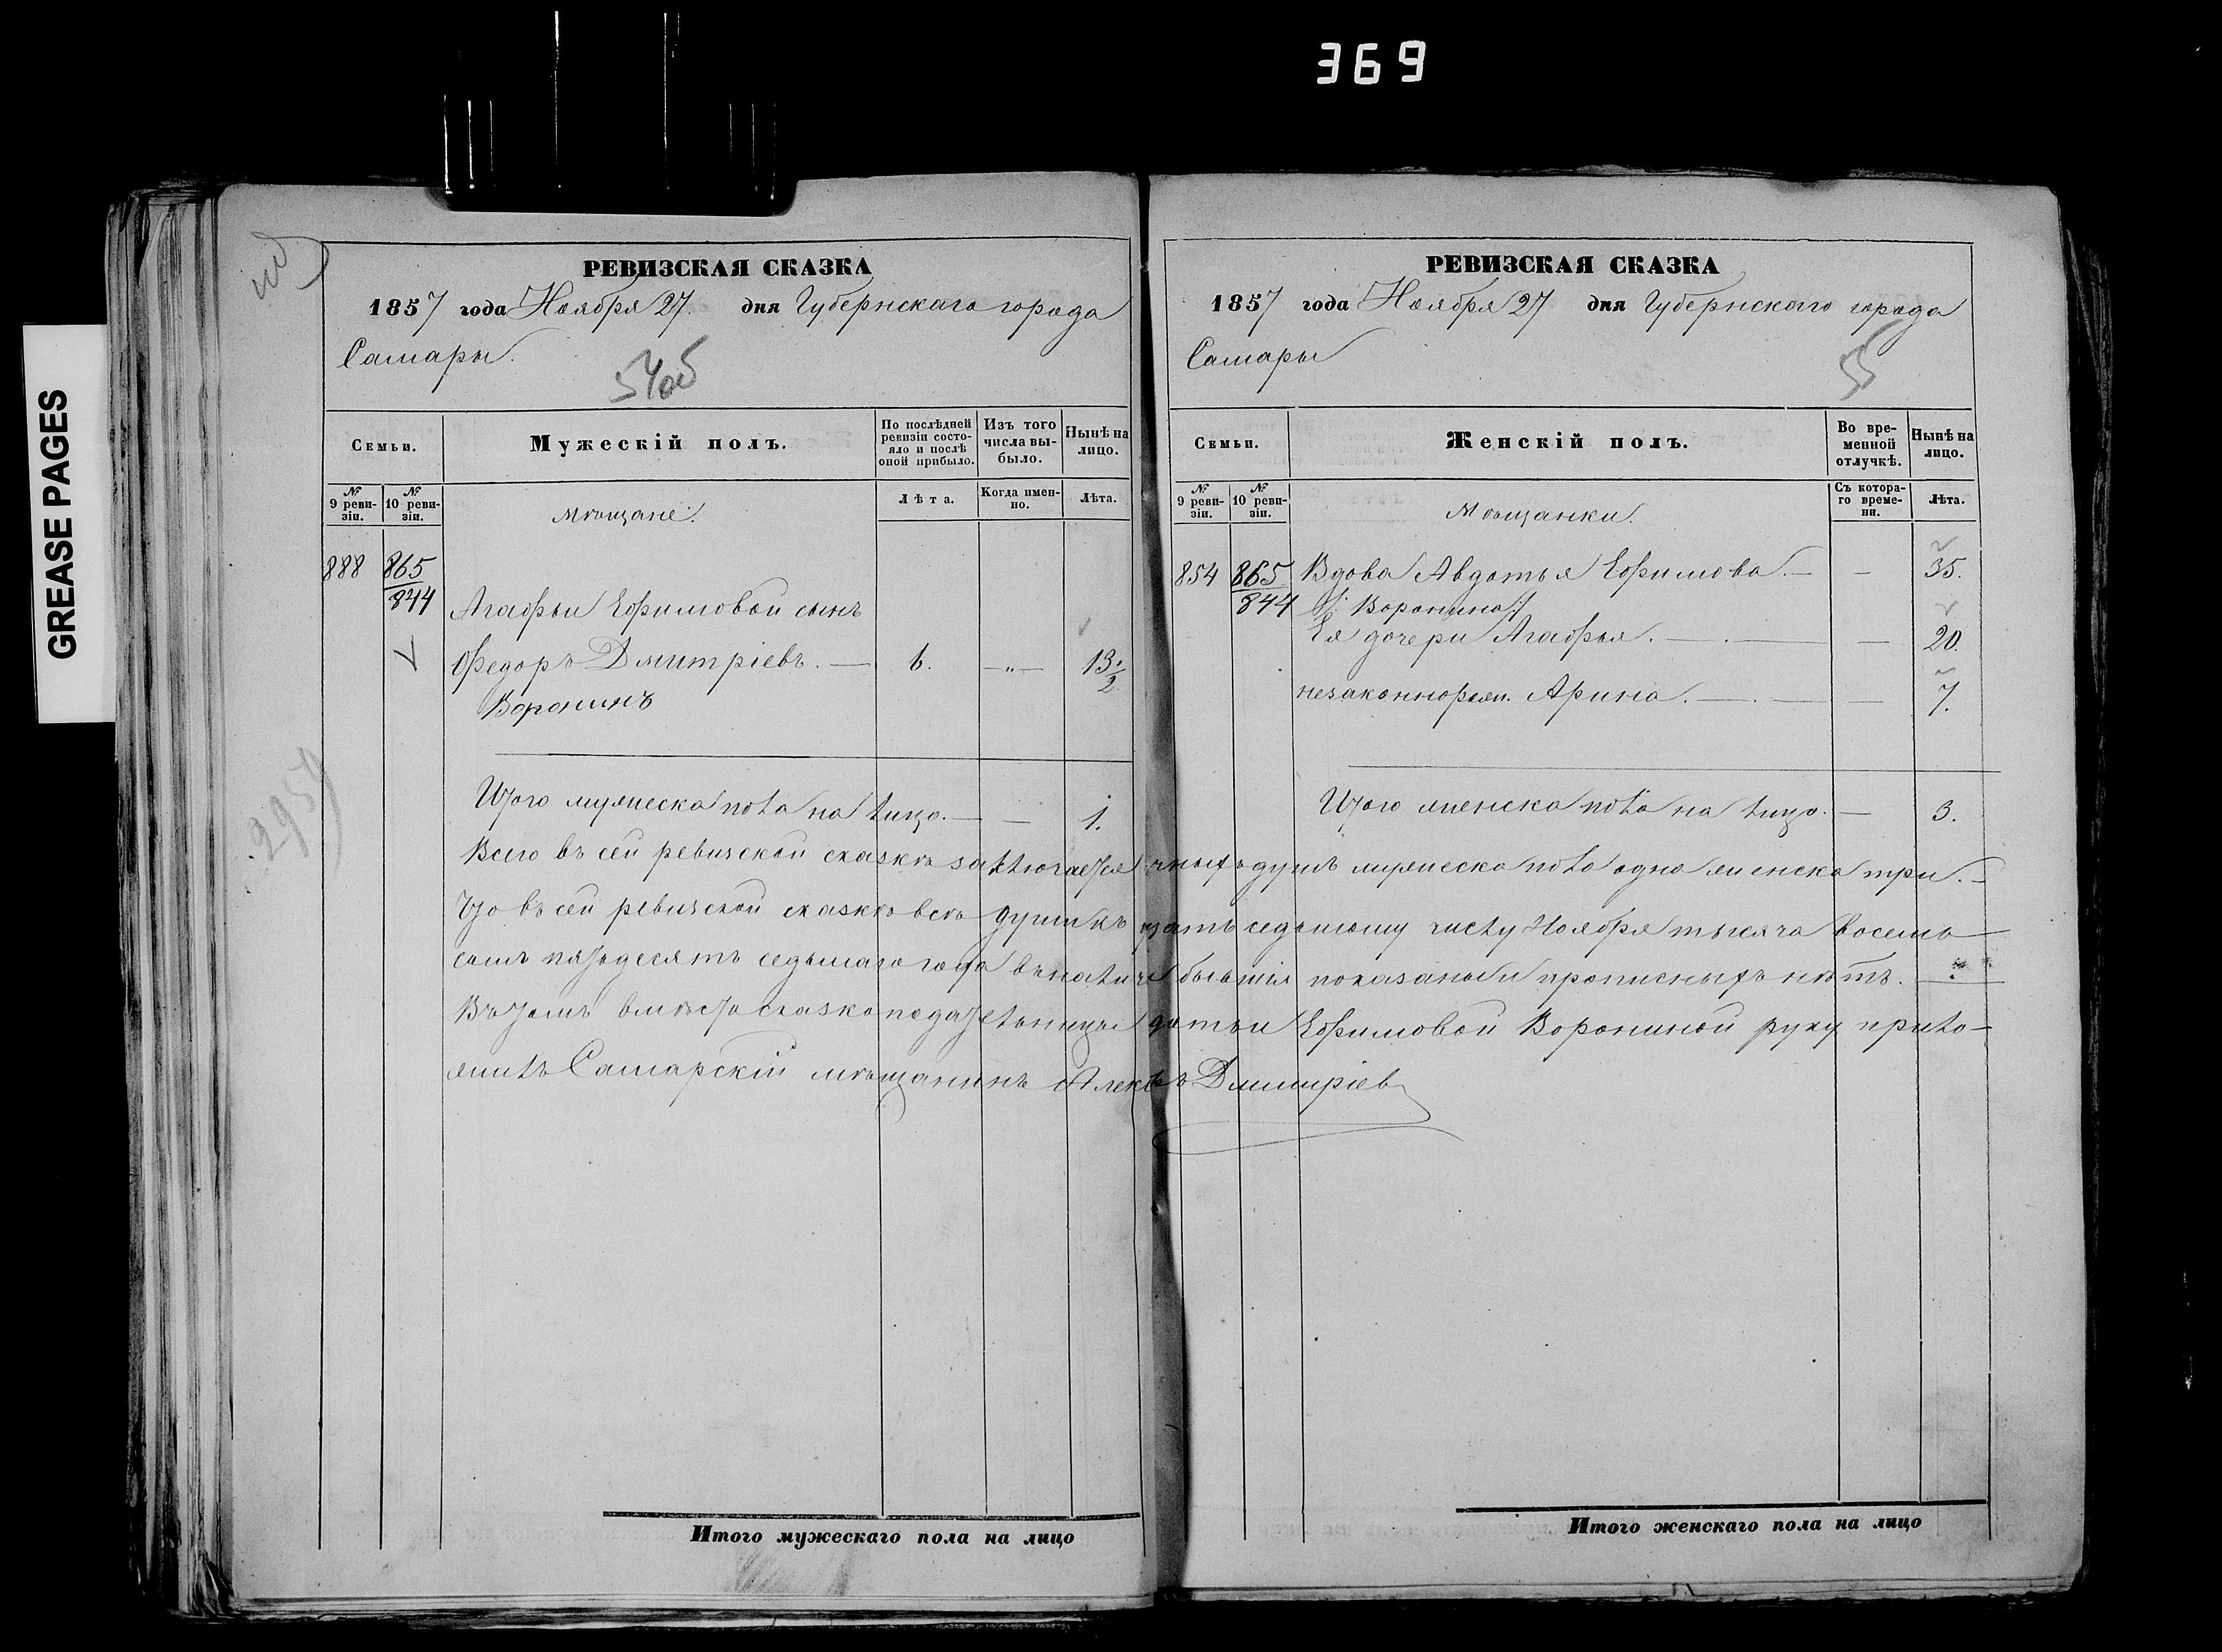 369
GREASE PAGES
РЕВИЗСКАЯ СКАЗКА
1857 года Ноября 27 дня Губернскаго города
Самары.
54об
Семьи.
Мужескій полъ.
По послѣдней ревизіи состояло и послѣ оной прибыло.
Изъ того числа выбыло.
Нынѣ на лицо.
№ 9 ревизіи.
№ 10 ревизіи.
мѣщане.
Лѣта.
Когда именно.
Лѣта.
888 865
844
Агафьи Ефимовой сынъ
Федоръ Дмитріевъ. — 6. — „ — 13 1/2
Воронинъ
Итого мужеска пола на лицо. — — 1.
2957
РЕВИЗСКАЯ СКАЗКА
1857 года Ноября 27 дня Губернскаго города
Самары
55
Семьи.
Женскій полъ.
Во временной отлучкѣ.
Нынѣ на лицо.
№ 9 ревизіи.
№ 10 ревизіи.
Мѣщанки.
Съ котораго времени.
Лѣта.
854 865 Вдова Авдотья Ефимова. — — 35.
844 /: Воронина :/
Ея дочери Агафья. — . — — 20.
незаконнорожд. Арина. — . — — 7.
Итого женска пола на лицо. — 3.
Всего въ сей ревизской сказкѣ заключается душъ мужеска пола одна женска три. —
Что въ сей ревизской сказкѣ всѣ души къ седьмому числу Ноября тысяча восемь —
сотъ пятьдесятъ седьмаго года въ бывшія показаны и прописныхъ нѣтъ. —
Въ томъ вмѣсто сказко Ефимовой Ворониной руку прило —
жилъ Самарскій мѣщанинъ Дмитріев
Итого мужескаго пола на лицо
Итого женскаго пола на лицо